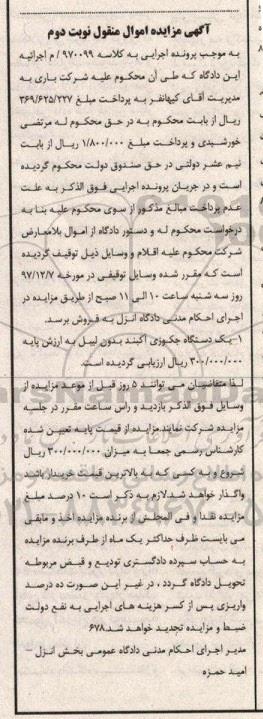 آگهی مزایده اموال منقول نوبت دوم
به موجب پرونده اجرایی به کلاسه ۹۷۰۰۹۹ / م اجرائیه
این دادگاه که طی آن محکوم علیه شرکت باری به
مدیریت آقای کیهانفر به پرداخت مبلغ ۳۶۹/۶۲۵/۲۲۷
ریال از بابت محکوم به در حق محکوم له مرتضی
خورشیدی و پرداخت مبلغ ۱/۸۰۰/۰۰۰ ریال از بابت
نیم عشر دولتی در حق صندوق دولت محکوم گردیده
است و در جریان پرونده اجرایی فوق الذکر به علت
عدم پرداخت مبالغ مذکور از سوی محکوم علیه بنا به
درخواست محکوم له و دستور دادگاه از اموال بلامعارض
شرکت محکوم علیه اقلام و وسایل ذیل توقیف گردیده
است که مقرر شده وسایل توقیفی در مورخه ۹۷/۱۲/۷
روز سه شنبه ساعت ۱۰ الی ۱۱ صبح از طریق مزایده در
اجرای احکام مدنی دادگاه انزل به فروش برسد.
۱-یک دستگاه جکوزی آکبند بدون لیبل به ارزش پایه
۳۰۰/۰۰۰/۰۰۰ ریال ارزیابی گردیده است.
لذا متقاضیان می توانند ۵ روز قبل از موعد مزایده از
وسایل فوق الذکر بازدید و راس ساعت مقرر در جلسه
مزایده شرکت نمایند.مزایده از قیمت پایه تعیین شده
کارشناس رسمی جمعا به میزان ۳۰۰/۰۰۰/۰۰۰ ریال
شروع و به کسی که به بالاترین قیمت خریدار باشد
واگذار خواهد شد.لازم به ذکر است ۱۰ درصد مبلغ
مزایده نقدا و فی المجلس از برنده مزایده اخذ و مابقی
می بایست ظرف حداکثر یک ماه از طرف برنده مزایده
به حساب سپرده دادگستری تودیع و قبض مربوطه
تحویل دادگاه گردد ، در غیر این صورت ده درصد
واریزی پس از کسر هزینه های اجرایی به نفع دولت
ضبط و مزایده تجدید خواهد شد.۶۷۸
مدیر اجرای احکام مدنی دادگاه عمومی بخش انزل –
امید حمزه